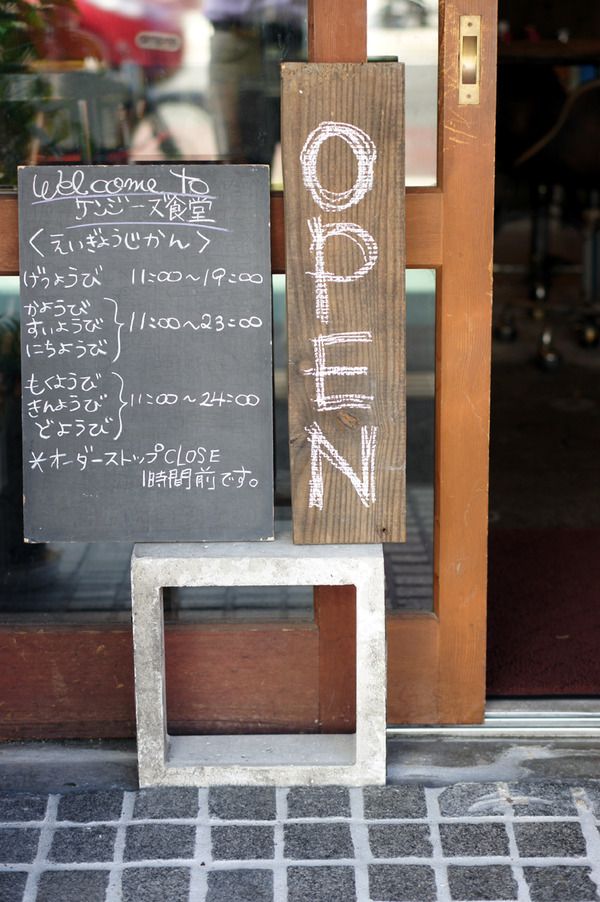 Welcome to
ケンジーズ食堂
〈えいぎょうじかん〉
げつようび 11:00〜19:00
かようび
すいようび 11:00〜23:00
にちようび
もくようび
きんようび 11:00〜24:00
どようび
*オーダーストップCLOSE
1時間前です。
OPEN